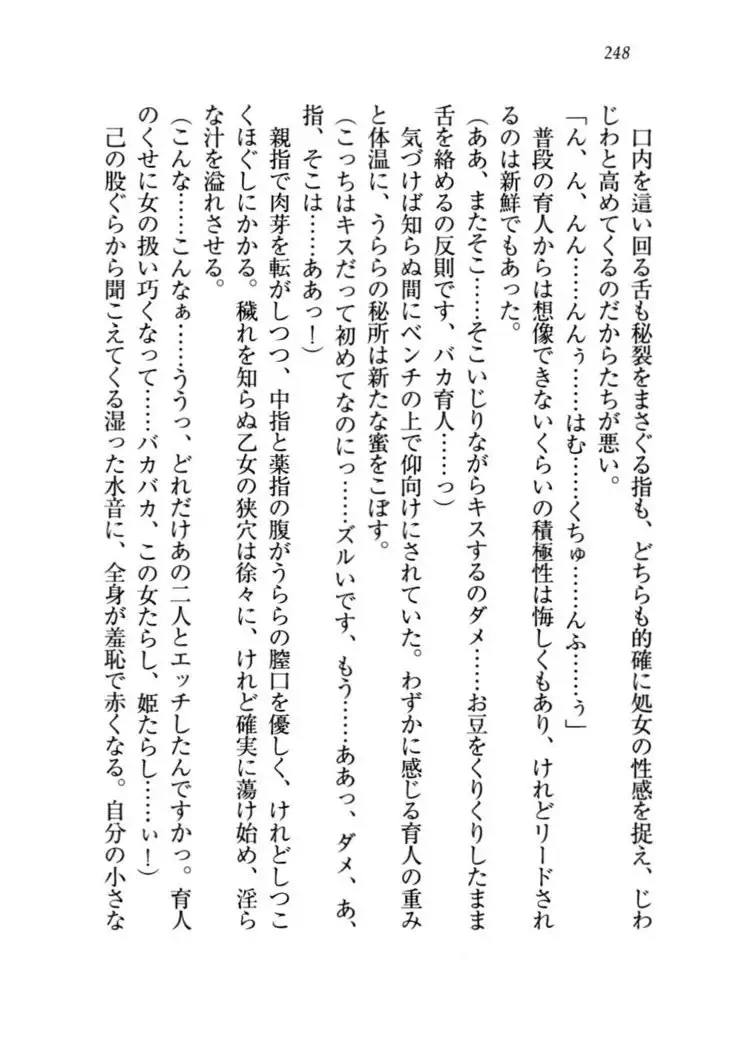 248
口内を這い回る舌も秘裂をまさぐる指も、どちらも的確に処女の性感を捉え、じわ
じわと高めてくるのだからたちが悪い。
「ん、ん、んん……んんぅ……はむ……くちゅ……んふ……ぅ」
普段の育人からは想像できないくらいの積極性は悔しくもあり、けれどリードされ
るのは新鮮でもあった。
(ああ、またそこ……そこいじりながらキスするのダメ……お豆をくりくりしたまま
舌を絡めるの反則です、バカ育人……っ)
気づけば知らぬ間にベンチの上で仰向けにされていた。わずかに感じる育人の重み
と体温に、うららの秘所は新たな蜜をこぼす。
(こっちはキスだって初めてなのにっ……ズルいです、もう……ああっ、ダメ、あ、
指、そこは……ああっ!)
親指で肉芽を転がしつつ、中指と薬指の腹がうららの膣口を優しく、けれどしつこ
くほぐしにかかる。穢れを知らぬ乙女の狭穴は徐々に、けれど確実に蕩け始め、淫ら
な汁を溢れさせる。
(こんな……こんなぁ……ううっ、どれだけあの二人とエッチしたんですかっ。育人
のくせに女の扱い巧くなって……バカバカ、この女たらし、姫たらし……ぃ!)
己の股ぐらから聞こえてくる湿った水音に、全身が羞恥で赤くなる。自分の小さな